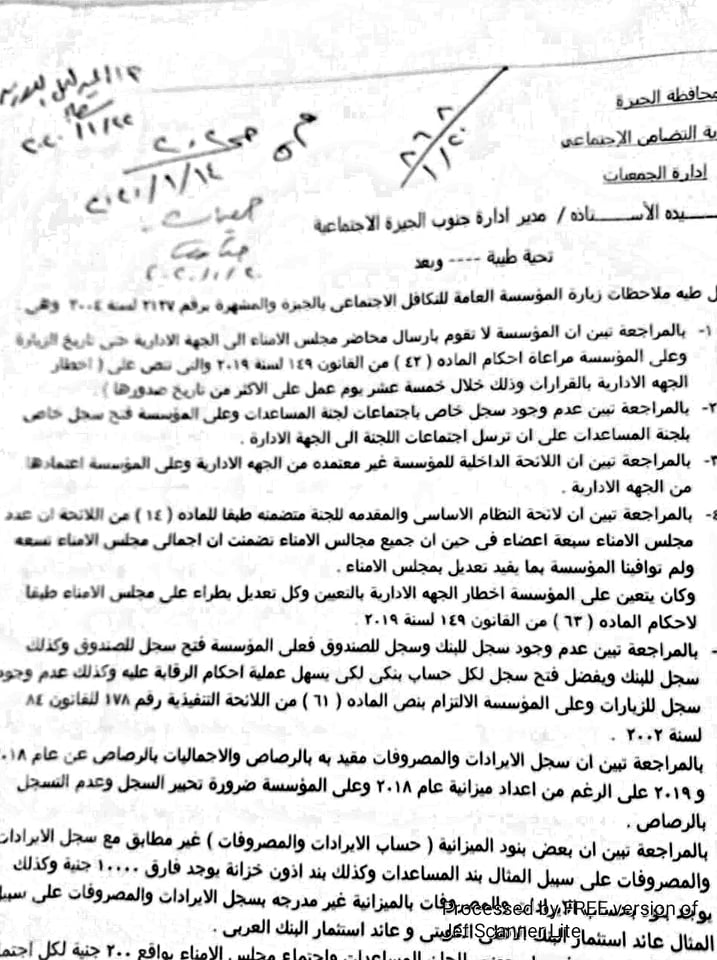 محافظة الجيزة
ية التضامن الاجتماعى
ادارة الجمعيات
٢٠٢٠/١/٢٢
٢٠٢٠/١/١٤
٢٦٨
١/٢٠
جمعيات
٢٠٢٠/١/٢٠
ـيده الأســـتاذه / مدير ادارة جنوب الجيزة الاجتماعية
تحية طيبة ---- وبعد
ل طيه ملاحظات زيارة المؤسسة العامة للتكافل الاجتماعى بالجيزة والمشهرة برقم ٢١٢٧ لسنة ٢٠٠٤ وهى :
١- بالمراجعة تبين ان المؤسسة لا تقوم بارسال محاضر مجلس الامناء الى الجهة الادارية حتى تاريخ الزيارة
وعلى المؤسسة مراعاة احكام الماده ( ٤٢ ) من القانون ١٤٩ لسنة ٢٠١٩ والتى تنص على ( اخطار
الجهه الادارية بالقرارات وذلك خلال خمسة عشر يوم عمل على الاكثر من تاريخ صدورها ) .
٢- بالمراجعة تبين عدم وجود سجل خاص باجتماعات لجنة المساعدات وعلى المؤسسة فتح سجل خاص
بلجنة المساعدات على ان ترسل اجتماعات اللجنة الى الجهة الادارة .
٣- بالمراجعة تبين ان اللائحة الداخلية للمؤسسة غير معتمده من الجهه الادارية وعلى المؤسسة اعتمادها
من الجهه الادارية .
٤- بالمراجعة تبين ان لائحة النظام الاساسى والمقدمه للجنة متضمنه طبقا للماده ( ١٤ ) من اللائحة ان عدد
مجلس الامناء سبعة اعضاء فى حين ان جميع مجالس الامناء تضمنت ان اجمالى مجلس الامناء تسعه
ولم توافينا المؤسسة بما يفيد تعديل بمجلس الامناء .
وكان يتعين على المؤسسة اخطار الجهه الادارية بالتعيين وكل تعديل يطراء على مجلس الامناء طبقا
لاحكام الماده ( ٦٣ ) من القانون ١٤٩ لسنة ٢٠١٩ .
- بالمراجعة تبين عدم وجود سجل للبنك وسجل للصندوق فعلى المؤسسة فتح سجل للصندوق وكذلك
سجل للبنك ويفضل فتح سجل لكل حساب بنكى لكى يسهل عملية احكام الرقابة عليه وكذلك عدم وجود
سجل للزيارات وعلى المؤسسة الالتزام بنص الماده ( ٦١ ) من اللائحة التنفيذية رقم ١٧٨ للقانون ٨٤
لسنة ٢٠٠٢ .
بالمراجعة تبين ان سجل الايرادات والمصروفات مقيد به بالرصاص والاجماليات بالرصاص عن عام ٢٠١٨
و ٢٠١٩ على الرغم من اعداد ميزانية عام ٢٠١٨ وعلى المؤسسة ضرورة تحبير السجل وعدم التسجل
بالرصاص .
بالمراجعة تبين ان بعض بنود الميزانية ( حساب الايرادات والمصروفات ) غير مطابق مع سجل الايرادات
والمصروفات على سبيل المثال بند المساعدات وكذلك بند اذون خزانة يوجد فارق ١٠٠٠٠ جنية وكذلك
يوجد والمصروفات بالميزانية غير مدرجه بسجل الايرادات والمصروفات على سبيل
المثال عائد استثمار البنك الاهلى و عائد استثمار البنك العربى .
Processed by FREE version of
JetIScanner Lite
المساعدات واجتماع مجلس الامناء بواقع ٢٠٠ جنية لكل